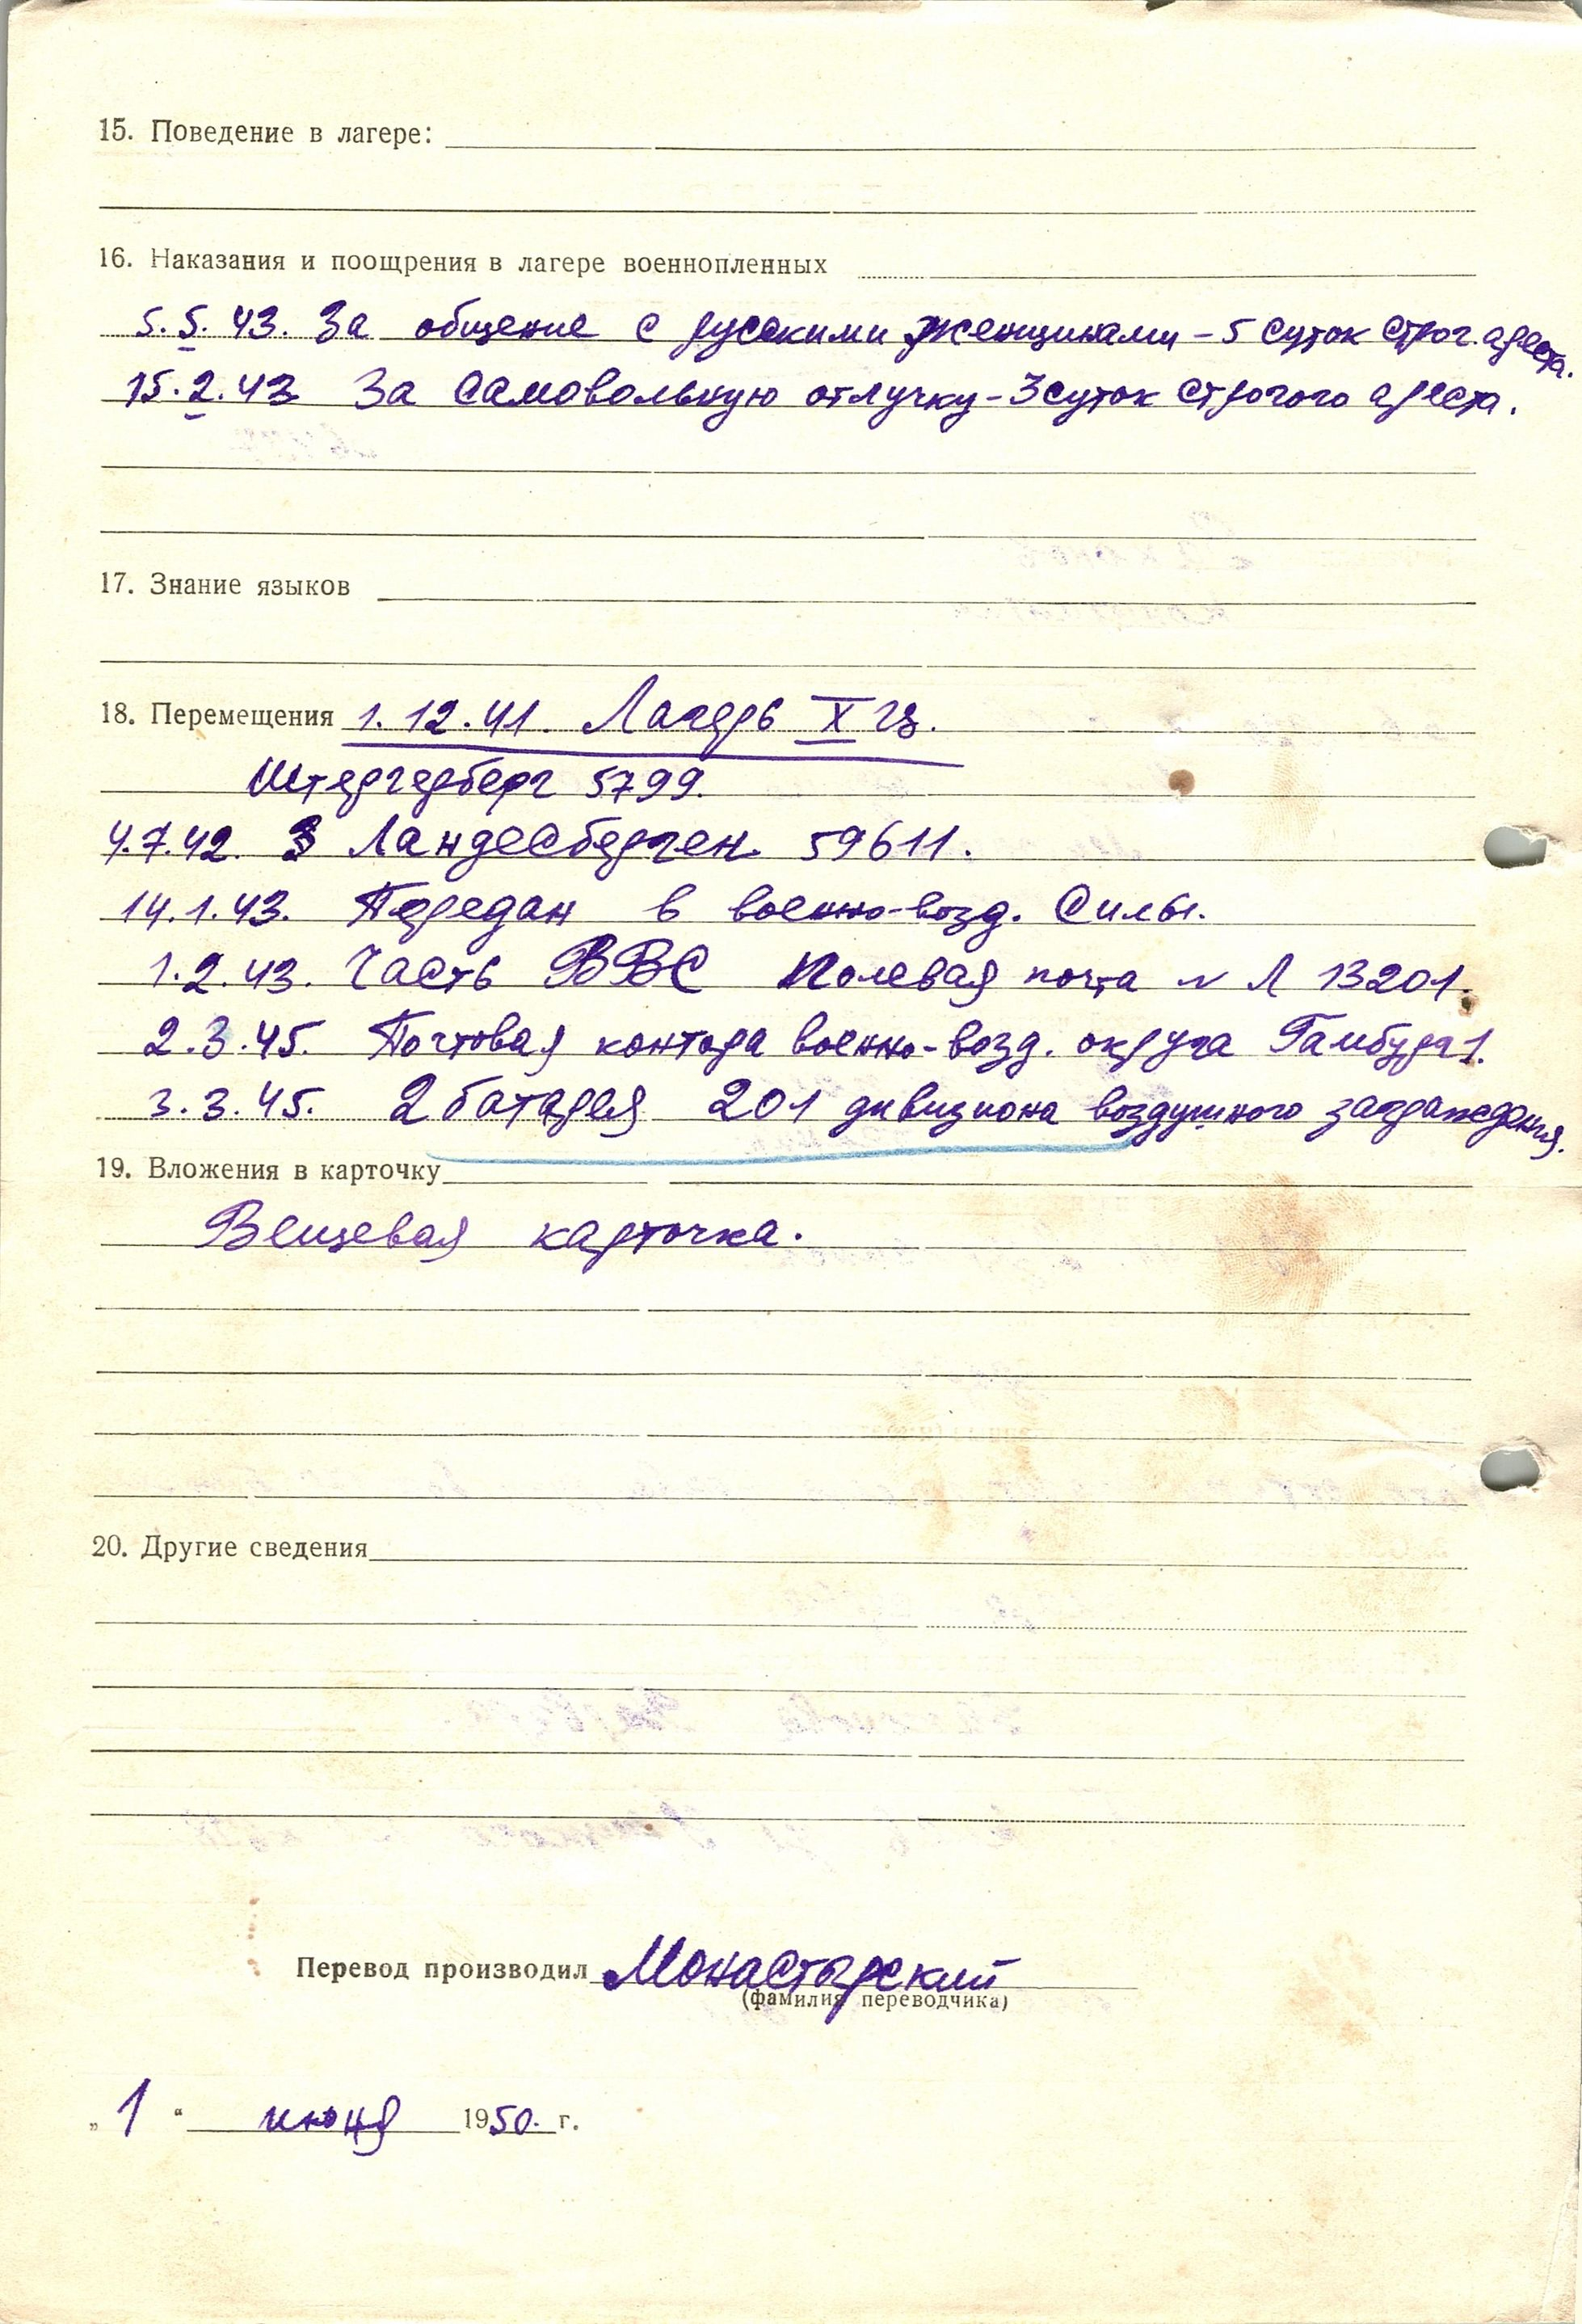 15. Поведение в лагере:
16. Наказания и поощрения в лагере военнопленных
5.5.43. За общение с русскими женщинами – 5 суток строг. ареста.
15.2.43 За самовольную отлучку – 3 суток строгого ареста.
17. Знание языков
18. Перемещения 1.12.41. Лагерь X
5799.
4.7.42. Ландесберген 59611.
14.1.43. Передан в военно-возд. Силы.
1.2.43. Часть ВВС Полевая почта № Л 13201.
2.3.45. Почтовая контора военно-возд. округа Гамбург 1.
3.3.45. 2 батарея 201 дивизиона воздушного заграждения.
19. Вложения в карточку
Вещевая карточка.
20. Другие сведения
Перевод производил Монастырский
(фамилия переводчика)
„1“ июня 1950. г.